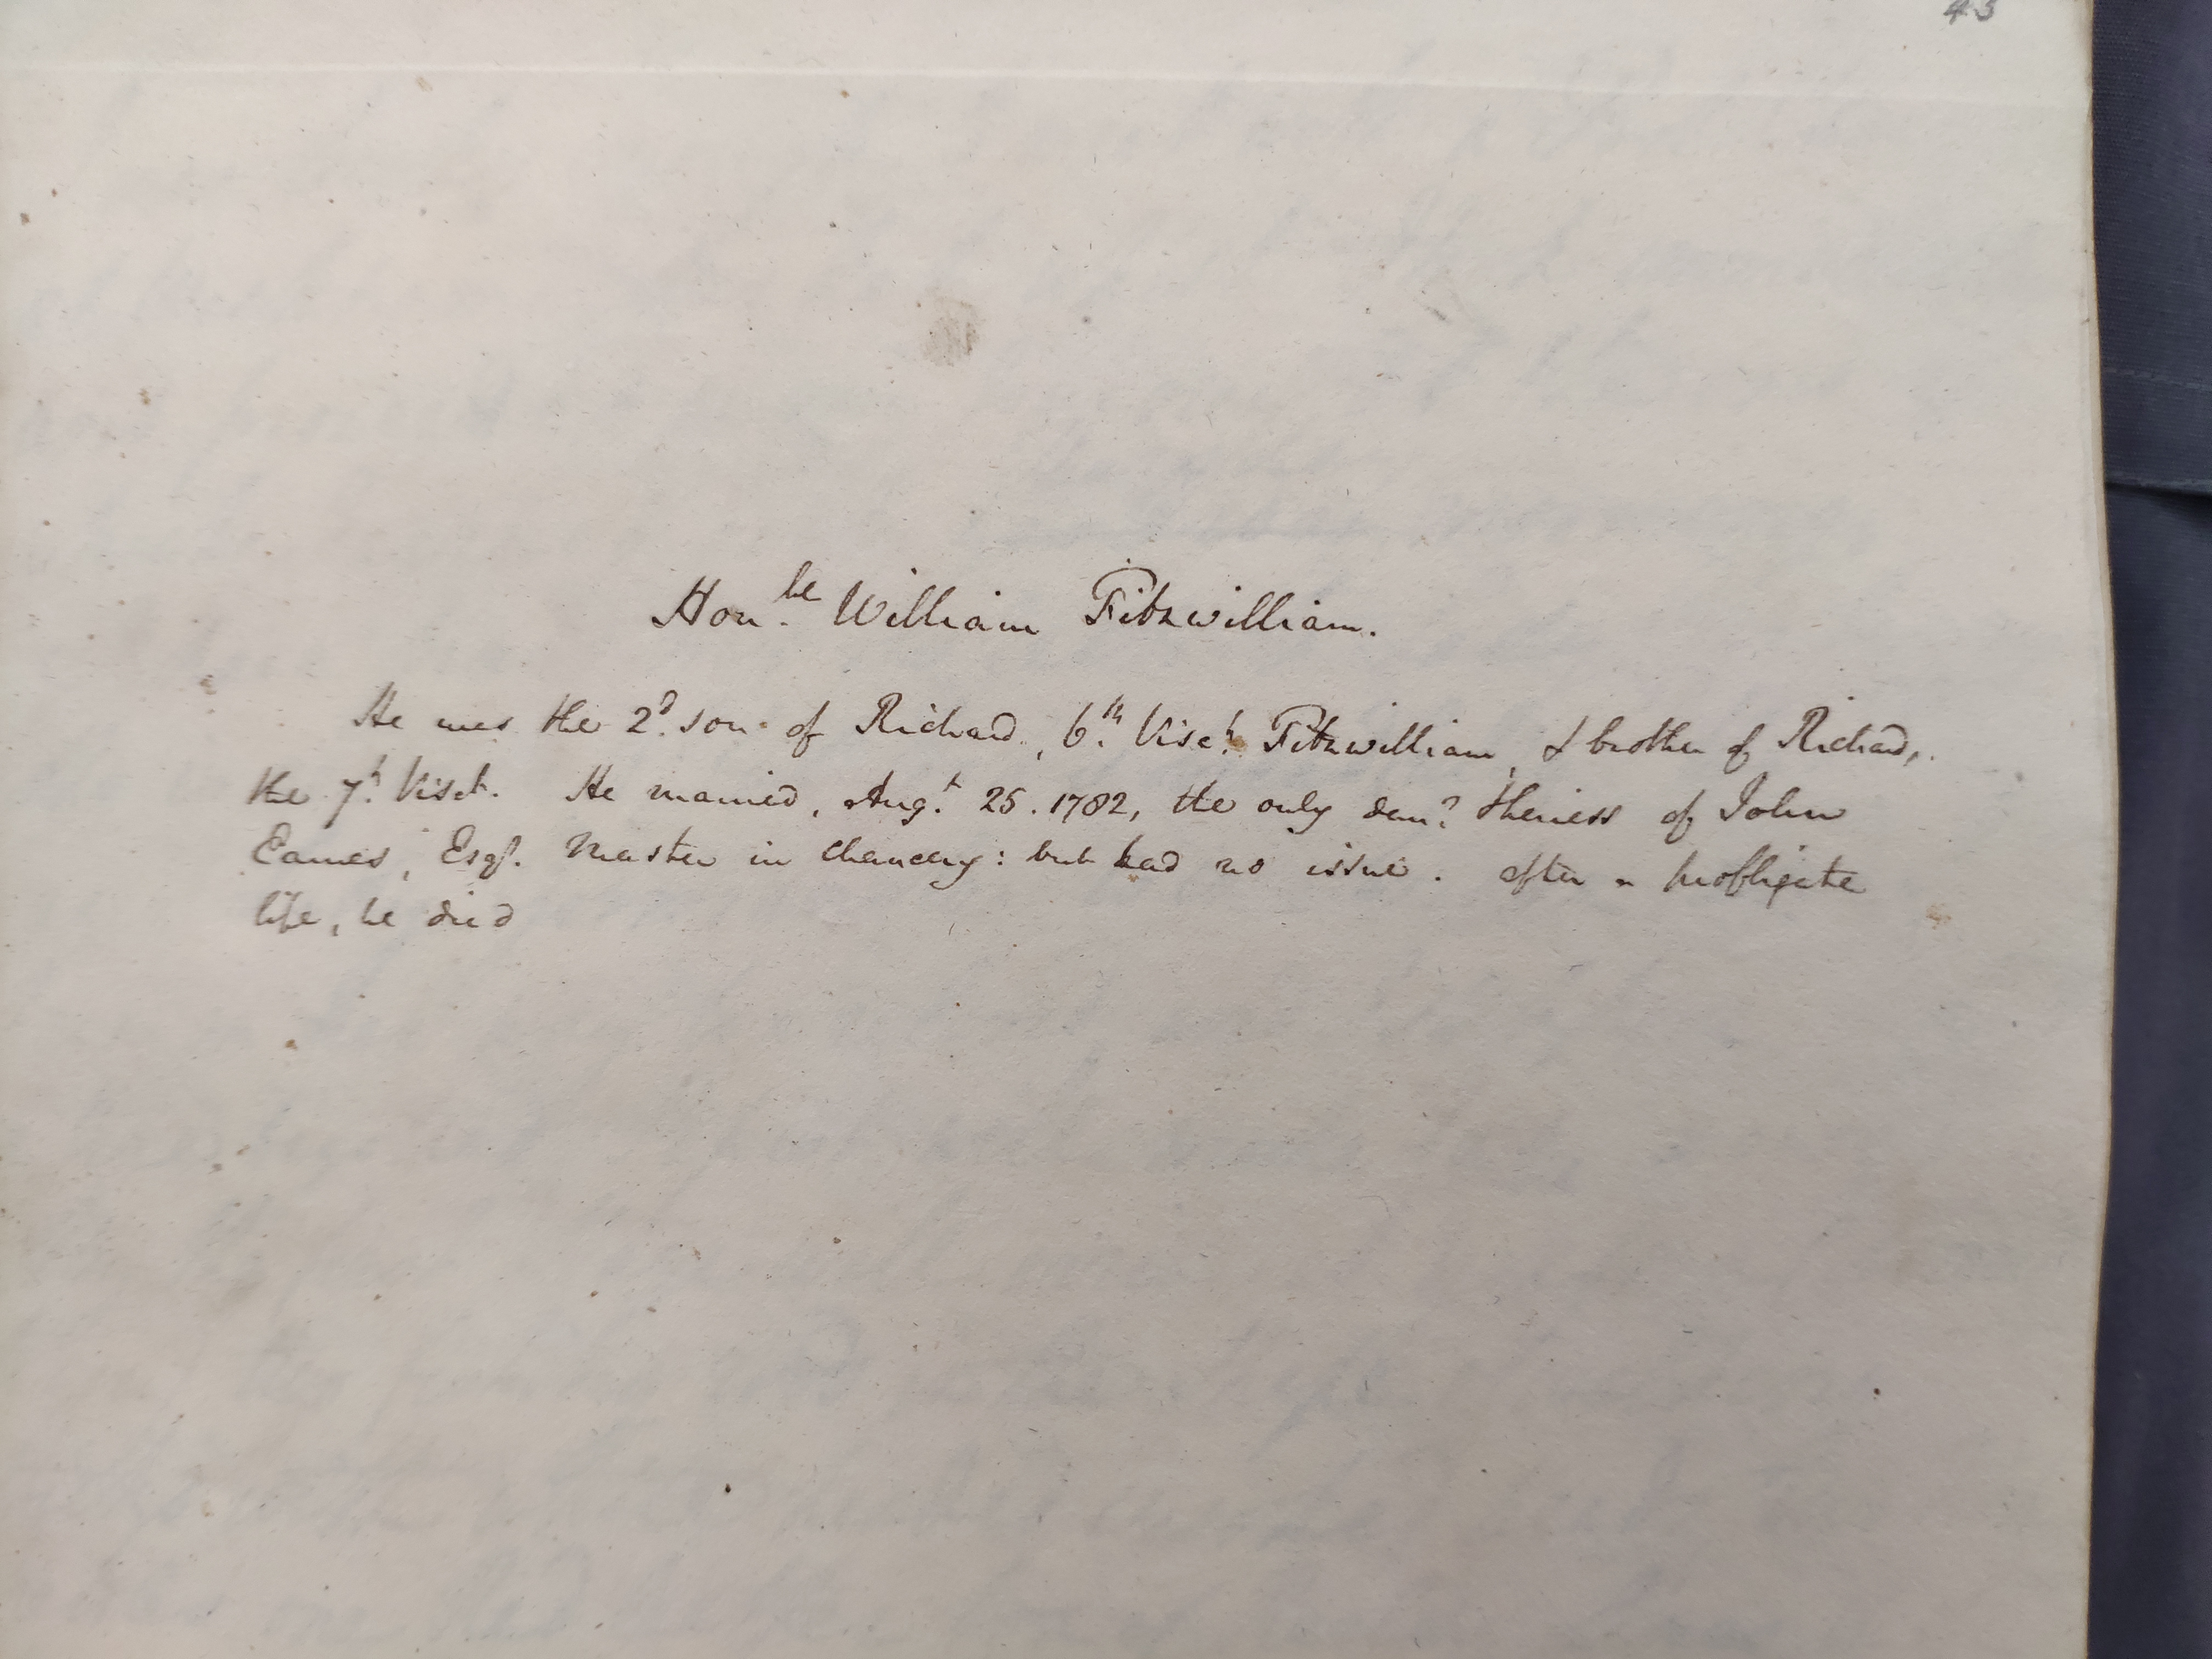 43
Hon.ble William Fitzwilliam.
He was the 2.d son of Richard, 6.th Visc.t Fitzwilliam, & brother of Richard,
the 7.th Visct. He married, Aug.t 25. 1782, the only dau.r & heiress of John
Eames, Esqr. Master in Chancery: but had no issue. After a profligate
life, he died